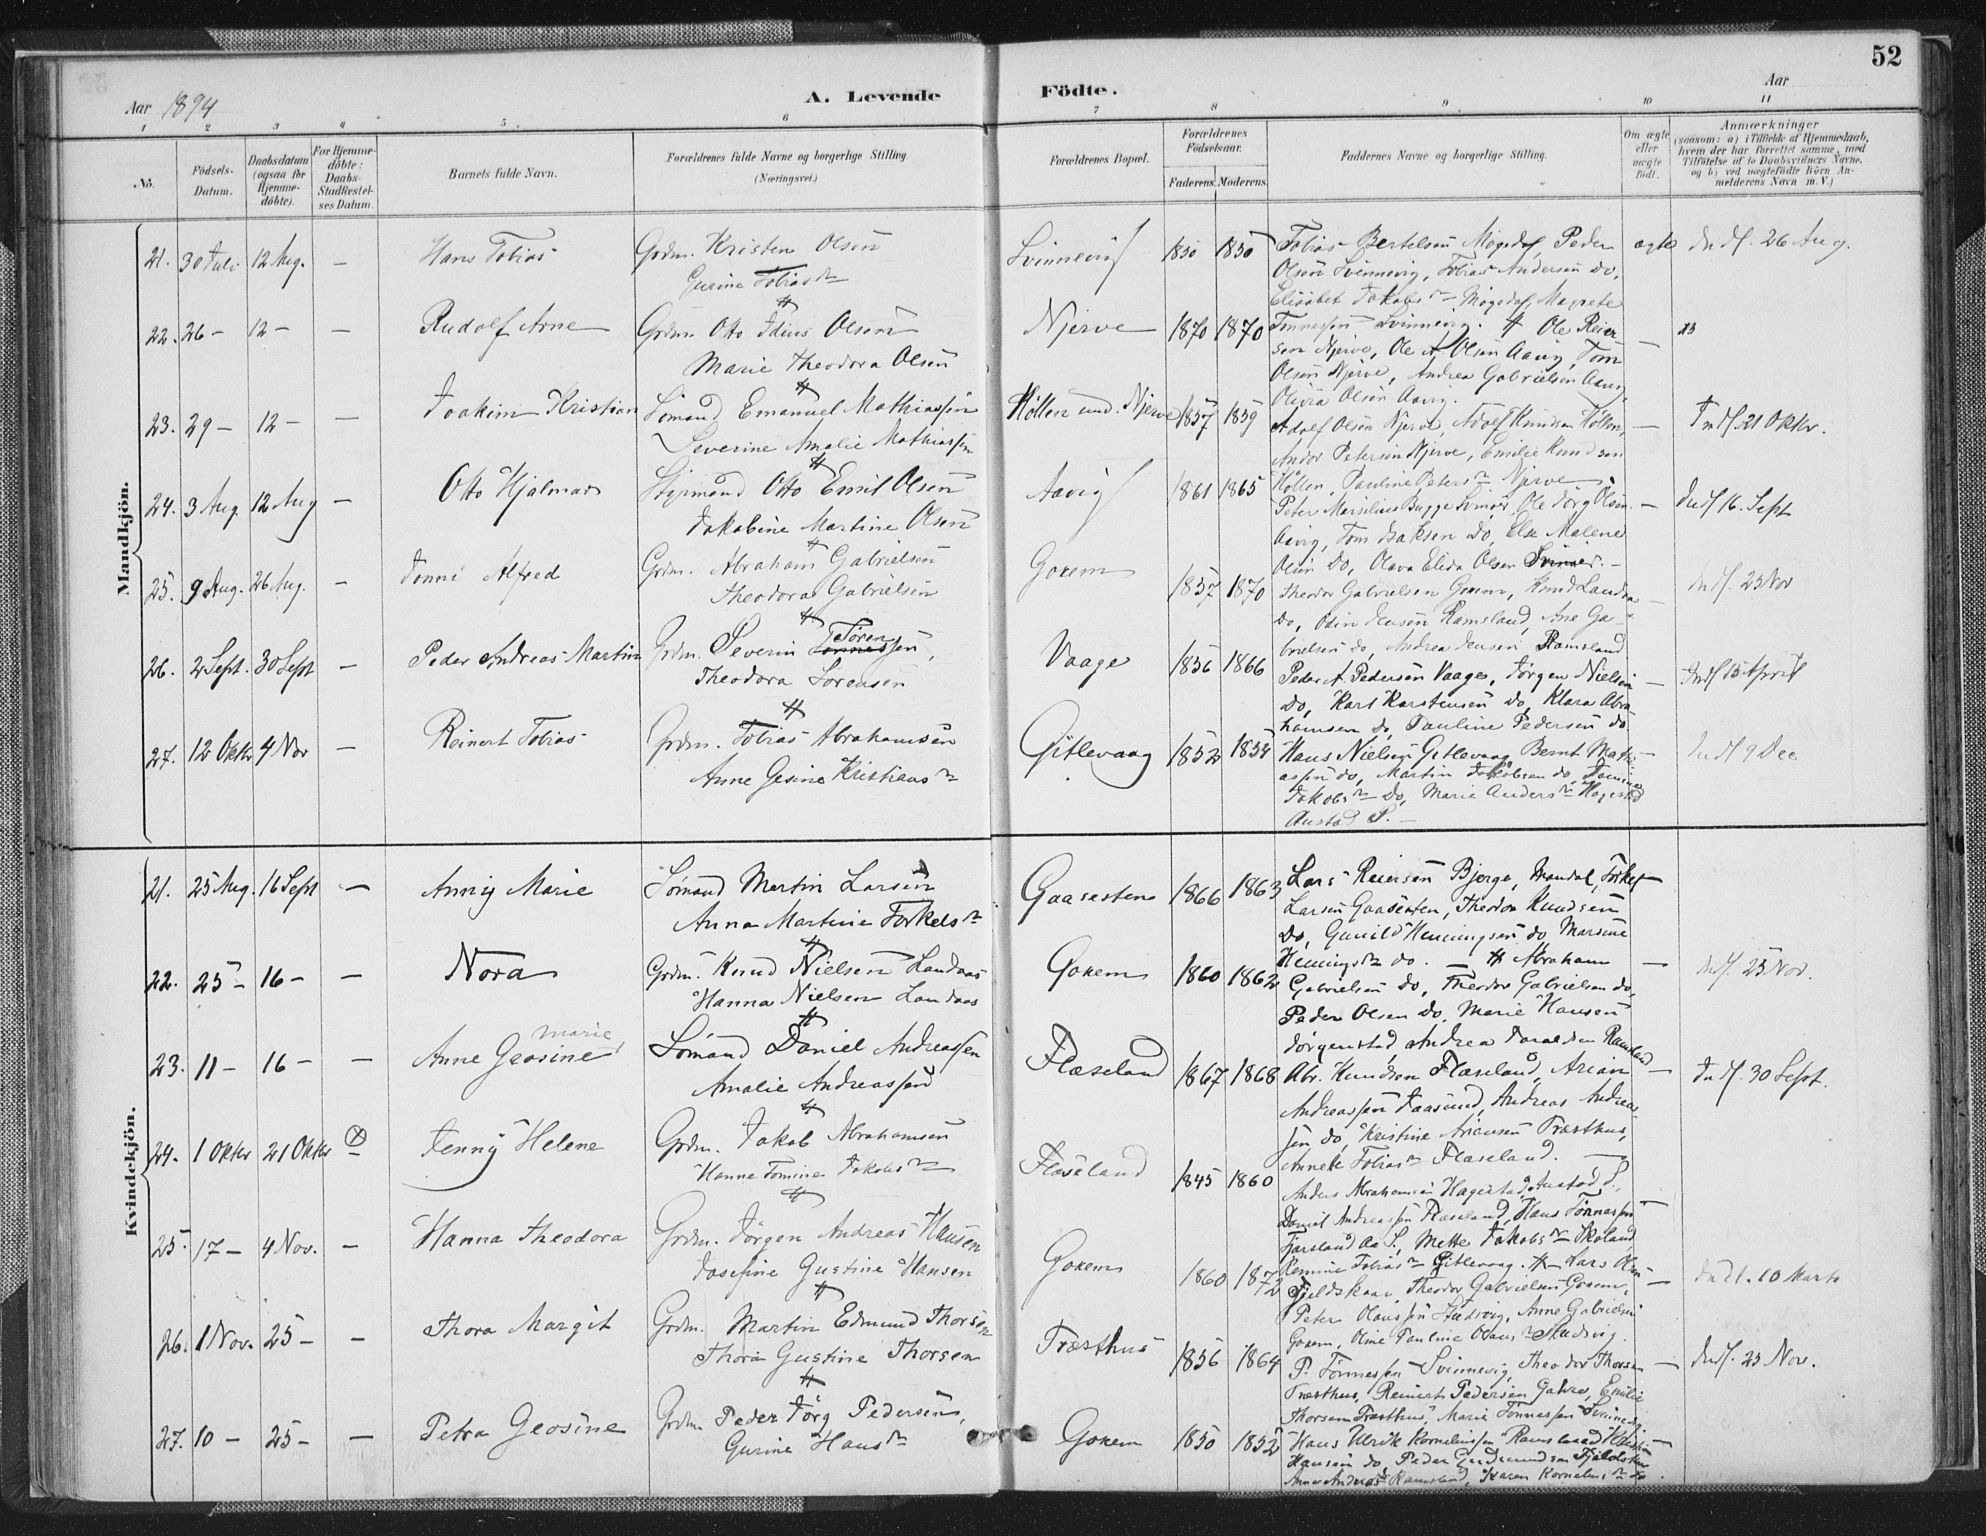 52
Aar 1894
A. Levende
Födte.
Aar
1 2 3 4 5 6 7 8 9 10 11
No.
Födsels-
Datum.
Daabsdatum
(ogsaa for
Hjemme-
döbte).
For Hjemme-
döbte:
Daabs-
Stadfæstel-
ses Datum.
Barnets fulde Navn.
Forældrenes fulde Navne og borgerlige Stilling.
(Næringsvei.)
Forældrenes Bopæl.
Forældrenes
Födselsaar.
Faderens. Moderens.
Faddernes Navne og borgerlige Stilling.
Om ægte
eller
uægte
födt.
Anmærkninger
(saasom: a) i Tilfælde af Hjemmedaab,
hvem der har forrettet samme, med
Tilföielse af to Daabsvidners Navne,
og b) ved uægtefödte Börn An-
melderens Navn m. V.)
Mandkjön.
21. 30 Juli 12 Aug. – Hans Tobias
Grdm. Kristen Olsen
Gurine Tobiasdr
Svinnevig 1850 1850
Tobias Bertelsen Møgedal, Peder
Olsen Svinnevig, Tobias Andersen do,
Elisabet Jakobsdr Møgedal, Magrete
Tønnessen Svinnevig.
ægte
Indf. 26 Aug.
22. 26 – 12 – – Rudolf Arne
Grdm. Otto Idius Olsen
Marie Theodora Olsen
Njerve 1870 1870
Ole Reier-
sen Njerve, Ole A. Olsen Aavig, Tom
Olsen Njerve, Andrea Gabrielsen Aavig,
Olivia Olsen Aavig.
–
23. 29 – 12 – – Joakim Kristian
Sømand Emanuel Mathiassen
Severine Amalie Mathiassen
Høllen und. Njerve 1857 1859
Adolf Olsen Njerve, Adolf Knudsen Høllen,
Andor Petersen Njerve, Emilie Knudsen
Høllen, Pauline Petersdr Njerve
–
Indf. 21 Oktbr.
24. 3 Aug. 12 Aug – Otto Hjalmar
Styrmand Otto Emil Olsen
Jakobine Martine Olsen
Aavig 1861 1865
Peter Marsilius Bugge Svinør, Ole Jörg Olsen
Aavig, Tom Isaksen do, Else Malene
Olsen do, Olava Elida Olsen Svinør. –
–
Indf. 16. Sept
25. 9 Aug. 26 Aug. – Tonni Alfred
Grdm. Abraham Gabrielsen
Theodora Gabrielsen
Gokem 1857 1870
Theodor Gabrielsen Gokem, Knud Landaas
do, Odin Jensen Ramsland, Ane Ga-
brielsen do, Andrea Jensen Ramsland
–
Indf. 25 Nov
26. 2 Sept. 30 Sept – Peder Andreas Martin
Grdm. Severin Sørensen,
Theodora Sørensen
Vaage 1856 1866
Peder A. Pedersen Vaage, Jörgen Nielsen
do, Karl Karstensen do, Klara Abra-
hamsen do, Pauline Pedersen do.
–
Indf 15 April
27. 12 Oktbr 4 Nov – Reinert Tobias
Grdm. Tobias Abrahamsen
Anne Gesine Kristiansdr
Gitlevaag 1852 1854
Hans Nielsen Gitlevaag, Bernt Mathi-
assen do, Martin Jakobsen do,
Jakobsdr do, Marie Andersdr Hagestad
Austad S. –
–
Indf 9 Dec
Kvindekjön.
21. 25 Aug. 16 Sept – Anny Marie
Sømand Martin Larsen
Anna Martine Torkelsdr
Gaasesten 1866 1863
Lars Reiersen Bjerge, Mandal, Torkel
Larsen Gaasesten, Theodor Knudsen
do, Gunild Henningsen do, Marsine
Henningsdr do.
–
22. 25 – 16 – – Nora
Grdm. Knud Nielsen Landaas
Hanna Nielsen Landaas
Gokem 1860 1862
Abraham
Gabrielsen do, Theodor Gabrielsen do,
Peder Olsen do, Marie Hansen
Jörgenstad, Andrea Taraldsen Ramsland
–
Indf. 25 Nov.
23. 11 – 16 – – Anne Marie Geosine
Sømand Daniel Andreassen
Amalie Andreassen
Flæseland 1867 1868
Abr. Knudsen Flæseland, Arian
Andreassen Faasund, Andreas Andreas-
sen do, Kristine Ariansen Træsthus,
Annette Tobiasdr Flæseland.
–
Indf. 30 Sept.
24. 1 Oktbr 21 Oktbr – Jenny Helene
Grdm. Jakob Abrahamsen
Hanne Tomine Jakobsdr
Flæseland 1845 1860
Anders Abrahamsen Hagestad, Austad S.,
Daniel Andreassen Flæseland, Hans Tönnessen
Fjarsland Aa S., Mette Jakobsdr Skoland
Remine Tobiasdr Gitlevaag.
–
25. 17 – 4 Nov. – Hanna Theodora
Grdm. Jörgen Andreas Hansen
Josefine Gustine Hansen
Gokem 1860 1872
Lars
Fjeldskaar, Theodor Gabrielsen Gokem,
Peter Olaussen Stedvig, Anne Gabrielsen
Gokem, Oline Pauline Olausdr Stedvig.
–
Indf. 10 Marts
26. 1 Nov. 25 – – Thora Margit
Grdm. Martin Edmund Thorsen
Thora Gustine Thorsen
Træsthus 1856 1864
P. Tönnessen Svinnevig, Theodor Thorsen
Træsthus, Reinert Pedersen Gahre, Emilie
Thorsen Træsthus, Marie Tönnessen Svinnevig
–
Indf. 25 Nov.
27. 10 – 25 – – Petra Geosine
Grdm. Peder Jörg Pedersen,
Gurine Hansdr
Gokem 1850 1852
Hans Ulrik Korneliussen Ramsland,
Hansen do, Peder Gudmundsen Fjeldskaar
Anne Andersdr Ramsland, Karen Korneliusdr do
–